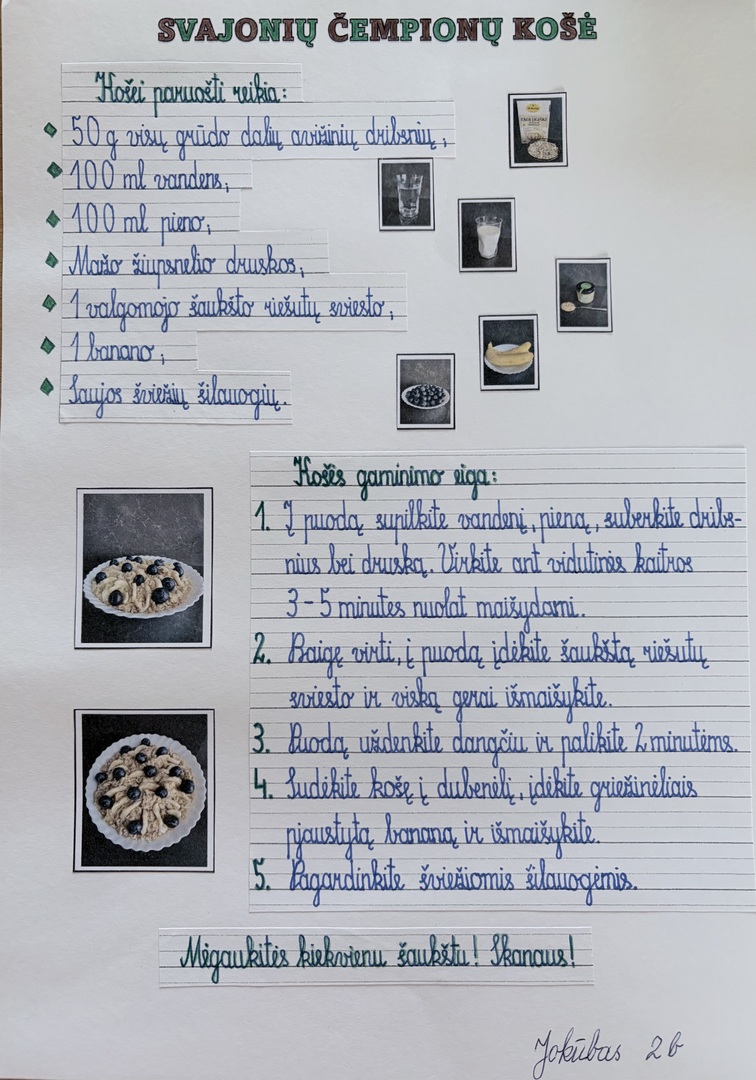 SVAJONIŲ ČEMPIONŲ KOŠĖ
Košei paruošti reikia:
50 g visų grūdo dalių avižinių dribsnių,
100 ml vandens,
100 ml pieno,
Mažo žiupsnelio druskos,
1 valgomojo šaukšto riešutų sviesto,
1 banano,
Saujos šviežių šilauogių.
Košės gaminimo eiga:
1. Į puodą supilkite vandenį, pieną, suberkite dribs-
nius bei druską. Virkite ant vidutinės kaitros
3-5 minutes nuolat maišydami.
2. Baigę virti, į puodą įdėkite šaukštą riešutų
sviesto ir viską gerai išmaišykite.
3. Puodą uždenkite dangčiu ir palikite 2 minutėms.
4. Sudėkite košę į dubenėlį, įdėkite griežinėliais
pjaustytą bananą ir išmaišykite.
5. Pagardinkite šviežiomis šilauogėmis.
Mėgaukitės kiekvienu šaukštu! Skanaus!
Jokūbas 2b